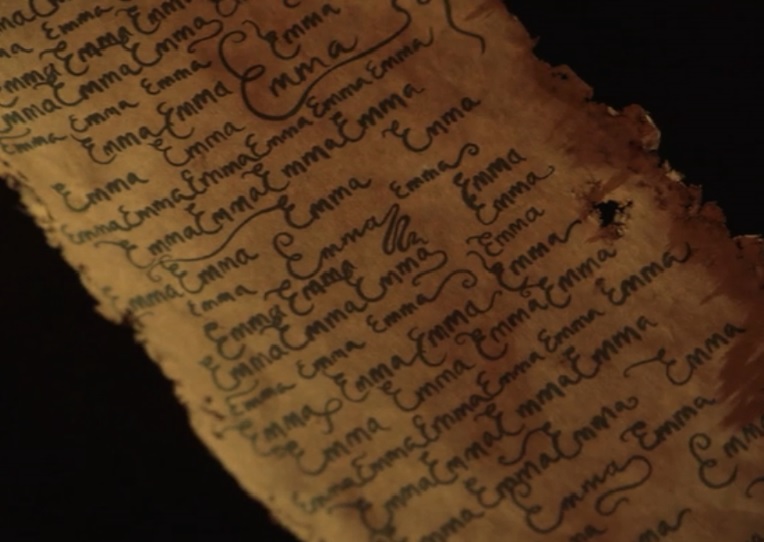 Emma Emma Emma
Emma Emma Emma Emma
Emma Emma Emma Emma
Emma Emma Emma Emma
Emma Emma Emma Emma Emma
Emma Emma Emma Emma
Emma Emma Emma Emma Emma
Emma Emma Emma Emma
Emma Emma Emma Emma
Emma Emma Emma Emma
Emma Emma Emma Emma
Emma Emma Emma Emma
Emma Emma Emma Emma Emma
Emma Emma Emma Emma Emma
Emma Emma Emma Emma
Emma Emma Emma Emma
Emma Emma Emma Emma
Emma Emma Emma Emma
Emma Emma Emma
Emma Emma